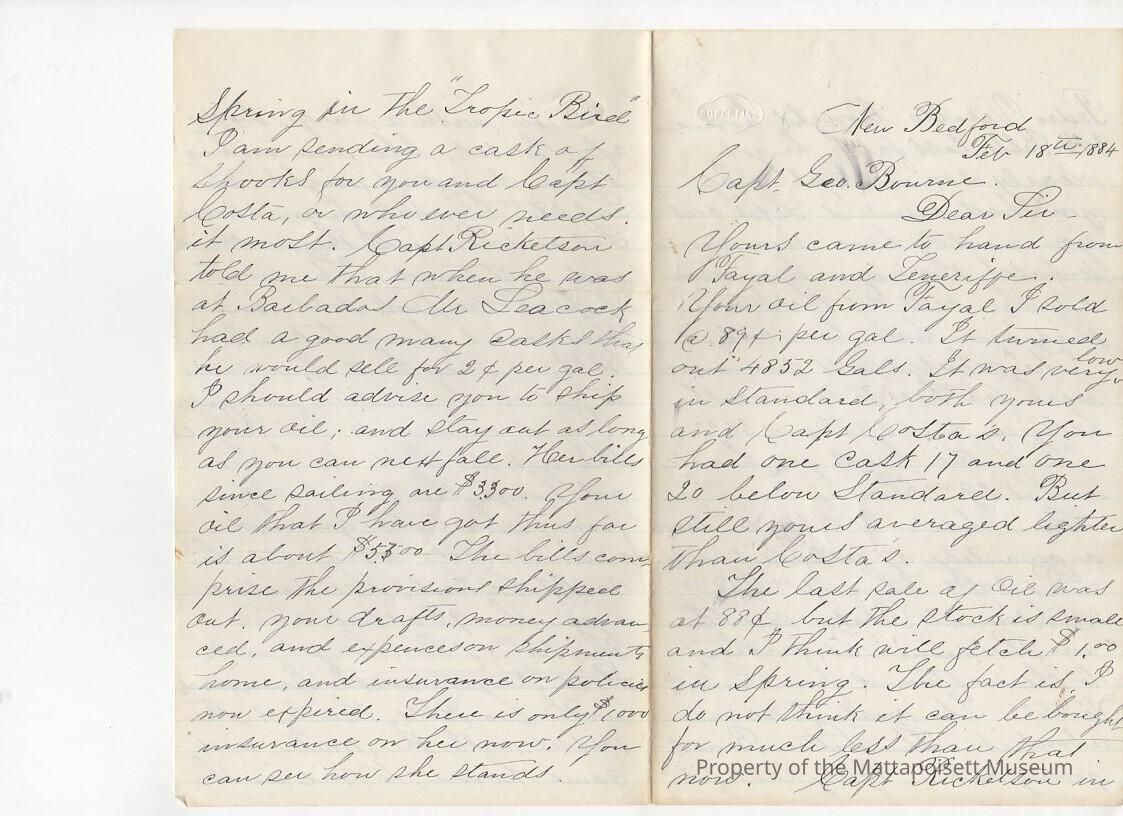 Spring in the "Tropic Bird"
I am sending a cask of
shooks for you and Capt
Costa, or who ever needs
it most. Capt Ricketson
told me that when he was
at Barbados Mr Leacock
had a good many casks that
he would sell for 2¢ per gal.
I should advise you to ship
your oil; and stay out as long
as you can next fall. Her bills
since sailing are $3300. Your
oil that I have got thus far
is about $5300 The bills com-
prise the provisions shipped
out, your drafts, money advan-
ced, and expences on shipments
home, and insurance on policies
now expired. There is only $1000
insurance on her now. You
can see how she stands
SUPERFINE
New Bedford
Feb 18th 1884
Capt. Geo. Bourne.
Dear Sir-
Yours came to hand from
Fayal and Teneriffe.
Your oil from Fayal I sold
@ 89¢ per gal. It turned
out 4852 Gals. It was very low
in Standard, both yours
and Capt Costa's. You
had one cask 17 and one
20 below Standard. But
still yours averaged lighter
than Costa's.
The last sale of Oil was
at 88¢ but the stock is small
and I think will fetch $1.00
in Spring. The fact is, I
do not think it can be bought
for much less than that
now. Capt Ricketson in
Property of the Mattapoisett Museum